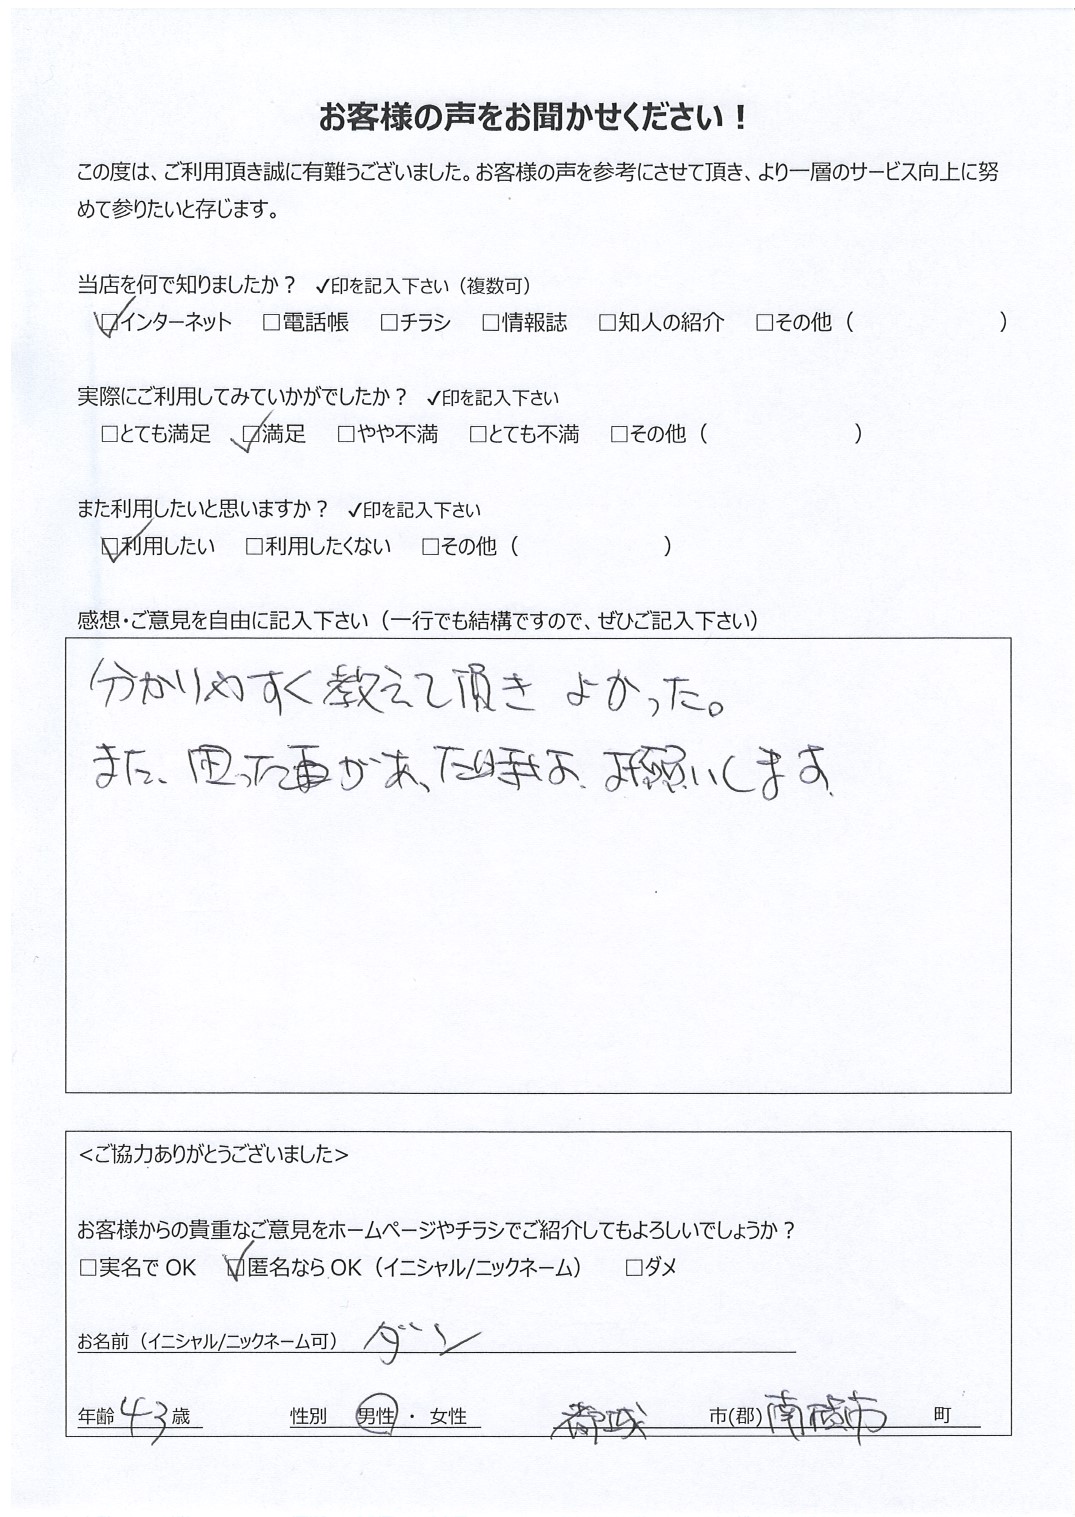 お客様の声をお聞かせください！
この度は、ご利用頂き誠に有難うございました。お客様の声を参考にさせて頂き、より一層のサービス向上に努
めて参りたいと存じます。
当店を何で知りましたか？ ✓印を記入下さい（複数可）
☑インターネット □電話帳 □チラシ □情報誌 □知人の紹介 □その他（ ）
実際にご利用してみていかがでしたか？ ✓印を記入下さい
□とても満足 ☑満足 □やや不満 □とても不満 □その他（ ）
また利用したいと思いますか？ ✓印を記入下さい
☑利用したい □利用したくない □その他（ ）
感想・ご意見を自由に記入下さい（一行でも結構ですので、ぜひご記入下さい）
分かりやすく教えて頂き よかった。
また、困った事があった時は、お願いします.
<ご協力ありがとうございました>
お客様からの貴重なご意見をホームページやチラシでご紹介してもよろしいでしょうか？
□実名で OK ☑匿名なら OK（イニシャル/ニックネーム） □ダメ
お名前（イニシャル/ニックネーム可） ダン
年齢 43 歳 性別 男性 ・ 女性 都城 市(郡) 町